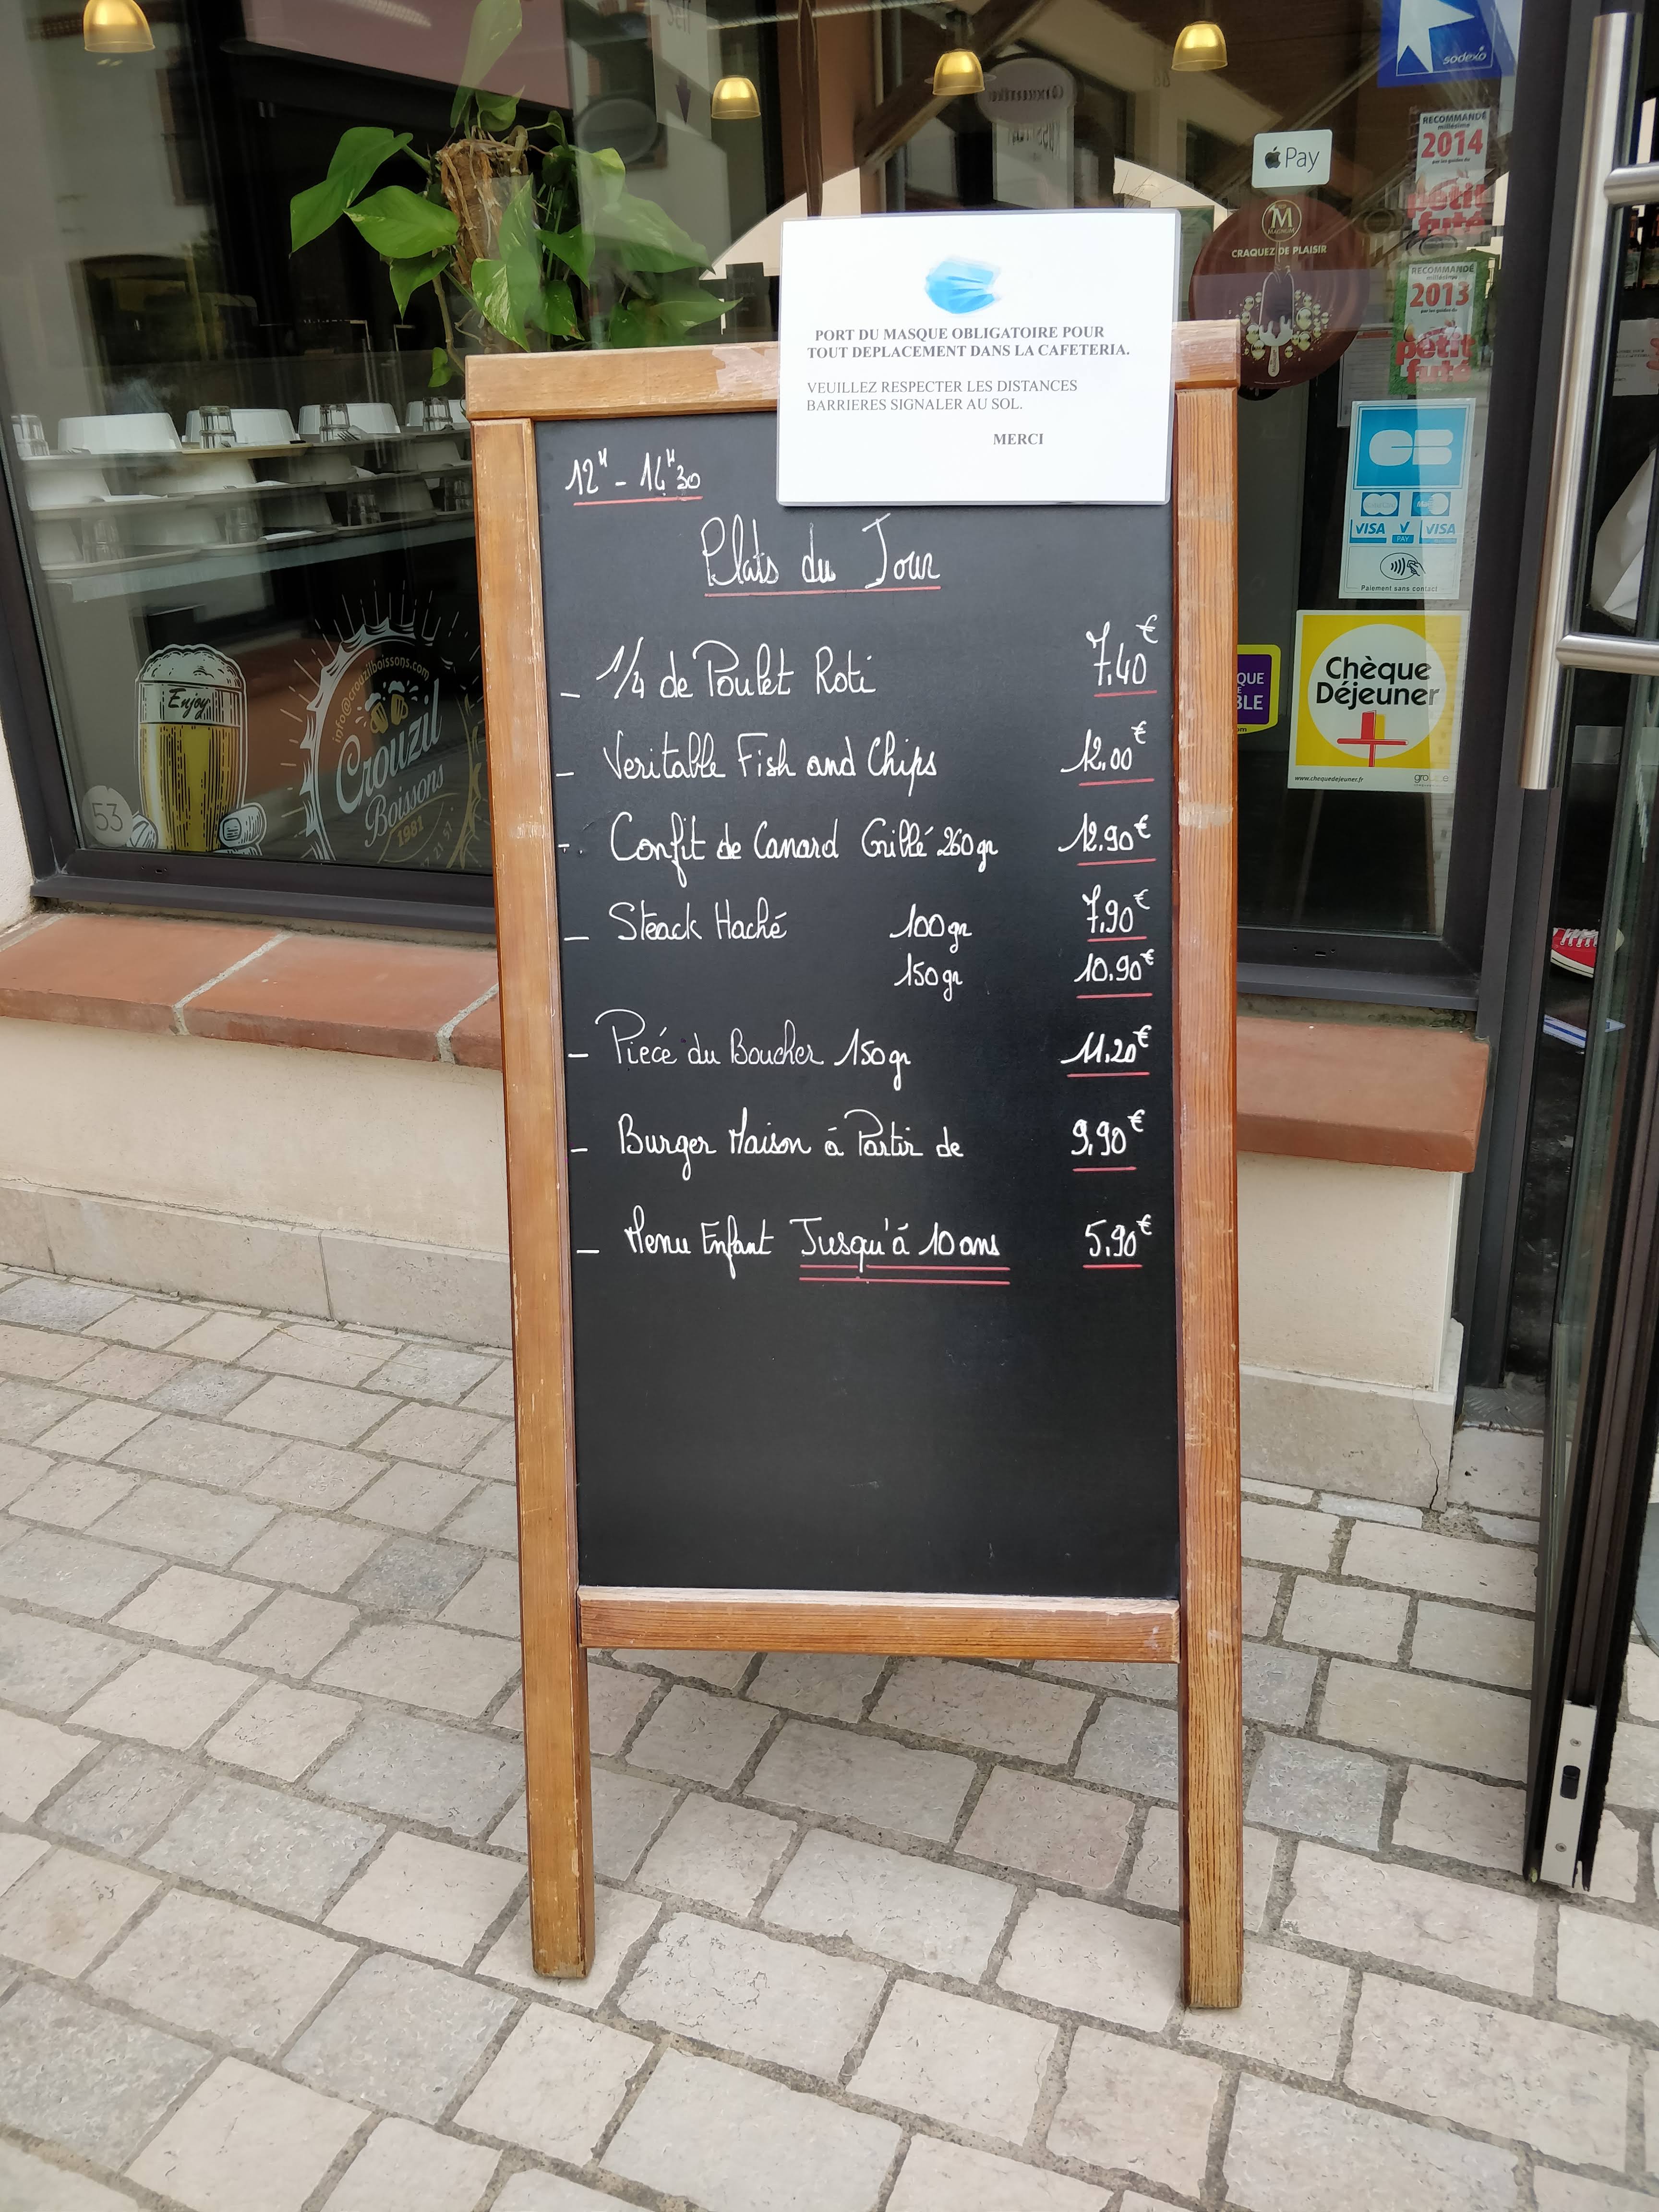 sodexo
RECOMMANDÉ
millésime
2014
par les guides du
petit
futé
Pay
M
MAGNUM
CRAQUEZ DE PLAISIR
RECOMMANDÉ
millésime
2013
par les guides du
petit
futé
PORT DU MASQUE OBLIGATOIRE POUR
TOUT DEPLACEMENT DANS LA CAFETERIA.
VEUILLEZ RESPECTER LES DISTANCES
BARRIERES SIGNALER AU SOL.
MERCI
12H - 14H30
Plats du Jour
- 1/4 de Poulet Roti 7.40€
- Veritable Fish and Chips 12.00€
- Confit de Canard Grillé 260gr 12.90€
- Steack Haché 100gr 7.90€
150gr 10.90€
- Piecé du Boucher 150gr 11.20€
- Burger Maison á Partir de 9,90€
- Menu Enfant Jusqu'á 10 ans 5.90€
CB
VISA V PAY VISA
Paiement sans contact
Chèque
Déjeuner
www.chequedejeuner.fr
Enjoy
info@crouzilboissons.com
Crouzil
Boissons
1981
53